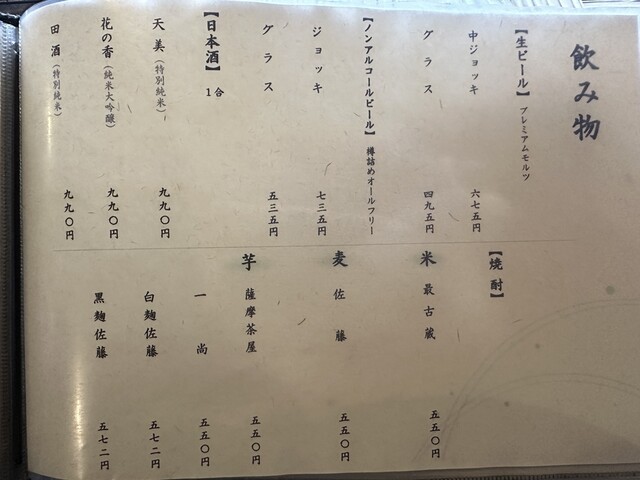 飲み物
【生ビール】 プレミアムモルツ
中ジョッキ 六七五円
グラス 四九五円
【ノンアルコールビール】 樽詰めオールフリー
ジョッキ 七三五円
グラス 五三五円
【日本酒】 1合
天美（特別純米） 九九〇円
花の香（純米大吟醸） 九九〇円
田酒（特別純米） 九九〇円
【焼酎】
米 最古蔵 五五〇円
麦 佐藤 五五〇円
芋 薩摩茶屋 五五〇円
一尚 五五〇円
白麹佐藤 五七二円
黒麹佐藤 五七二円